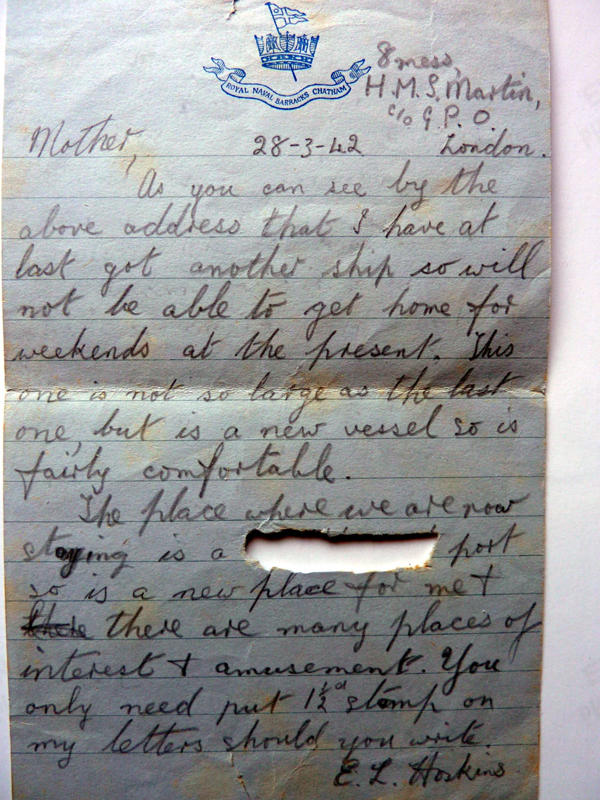 ROYAL NAVAL BARRACKS CHATHAM
8 mess,
H.M.S. Martin,
c/o G.P.O.
Mother, 28-3-42 London.
As you can see by the
above address that I have at
last got another ship so will
not be able to get home for
weekends at the present. This
one is not so large as the last
one, but is a new vessel so is
fairly comfortable.
The place where we are now
staying is a port
so is a new place for me &
there there are many places of
interest & amusement. You
only need put 1½d stamp on
my letters should you write.
E. L. Hoskins.